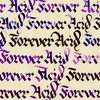 Forever Acid Forever
Acid Forever Acid
Forever Acid Forever
Acid Forever Acid
Forever Acid Forever
Forever Acid Forever